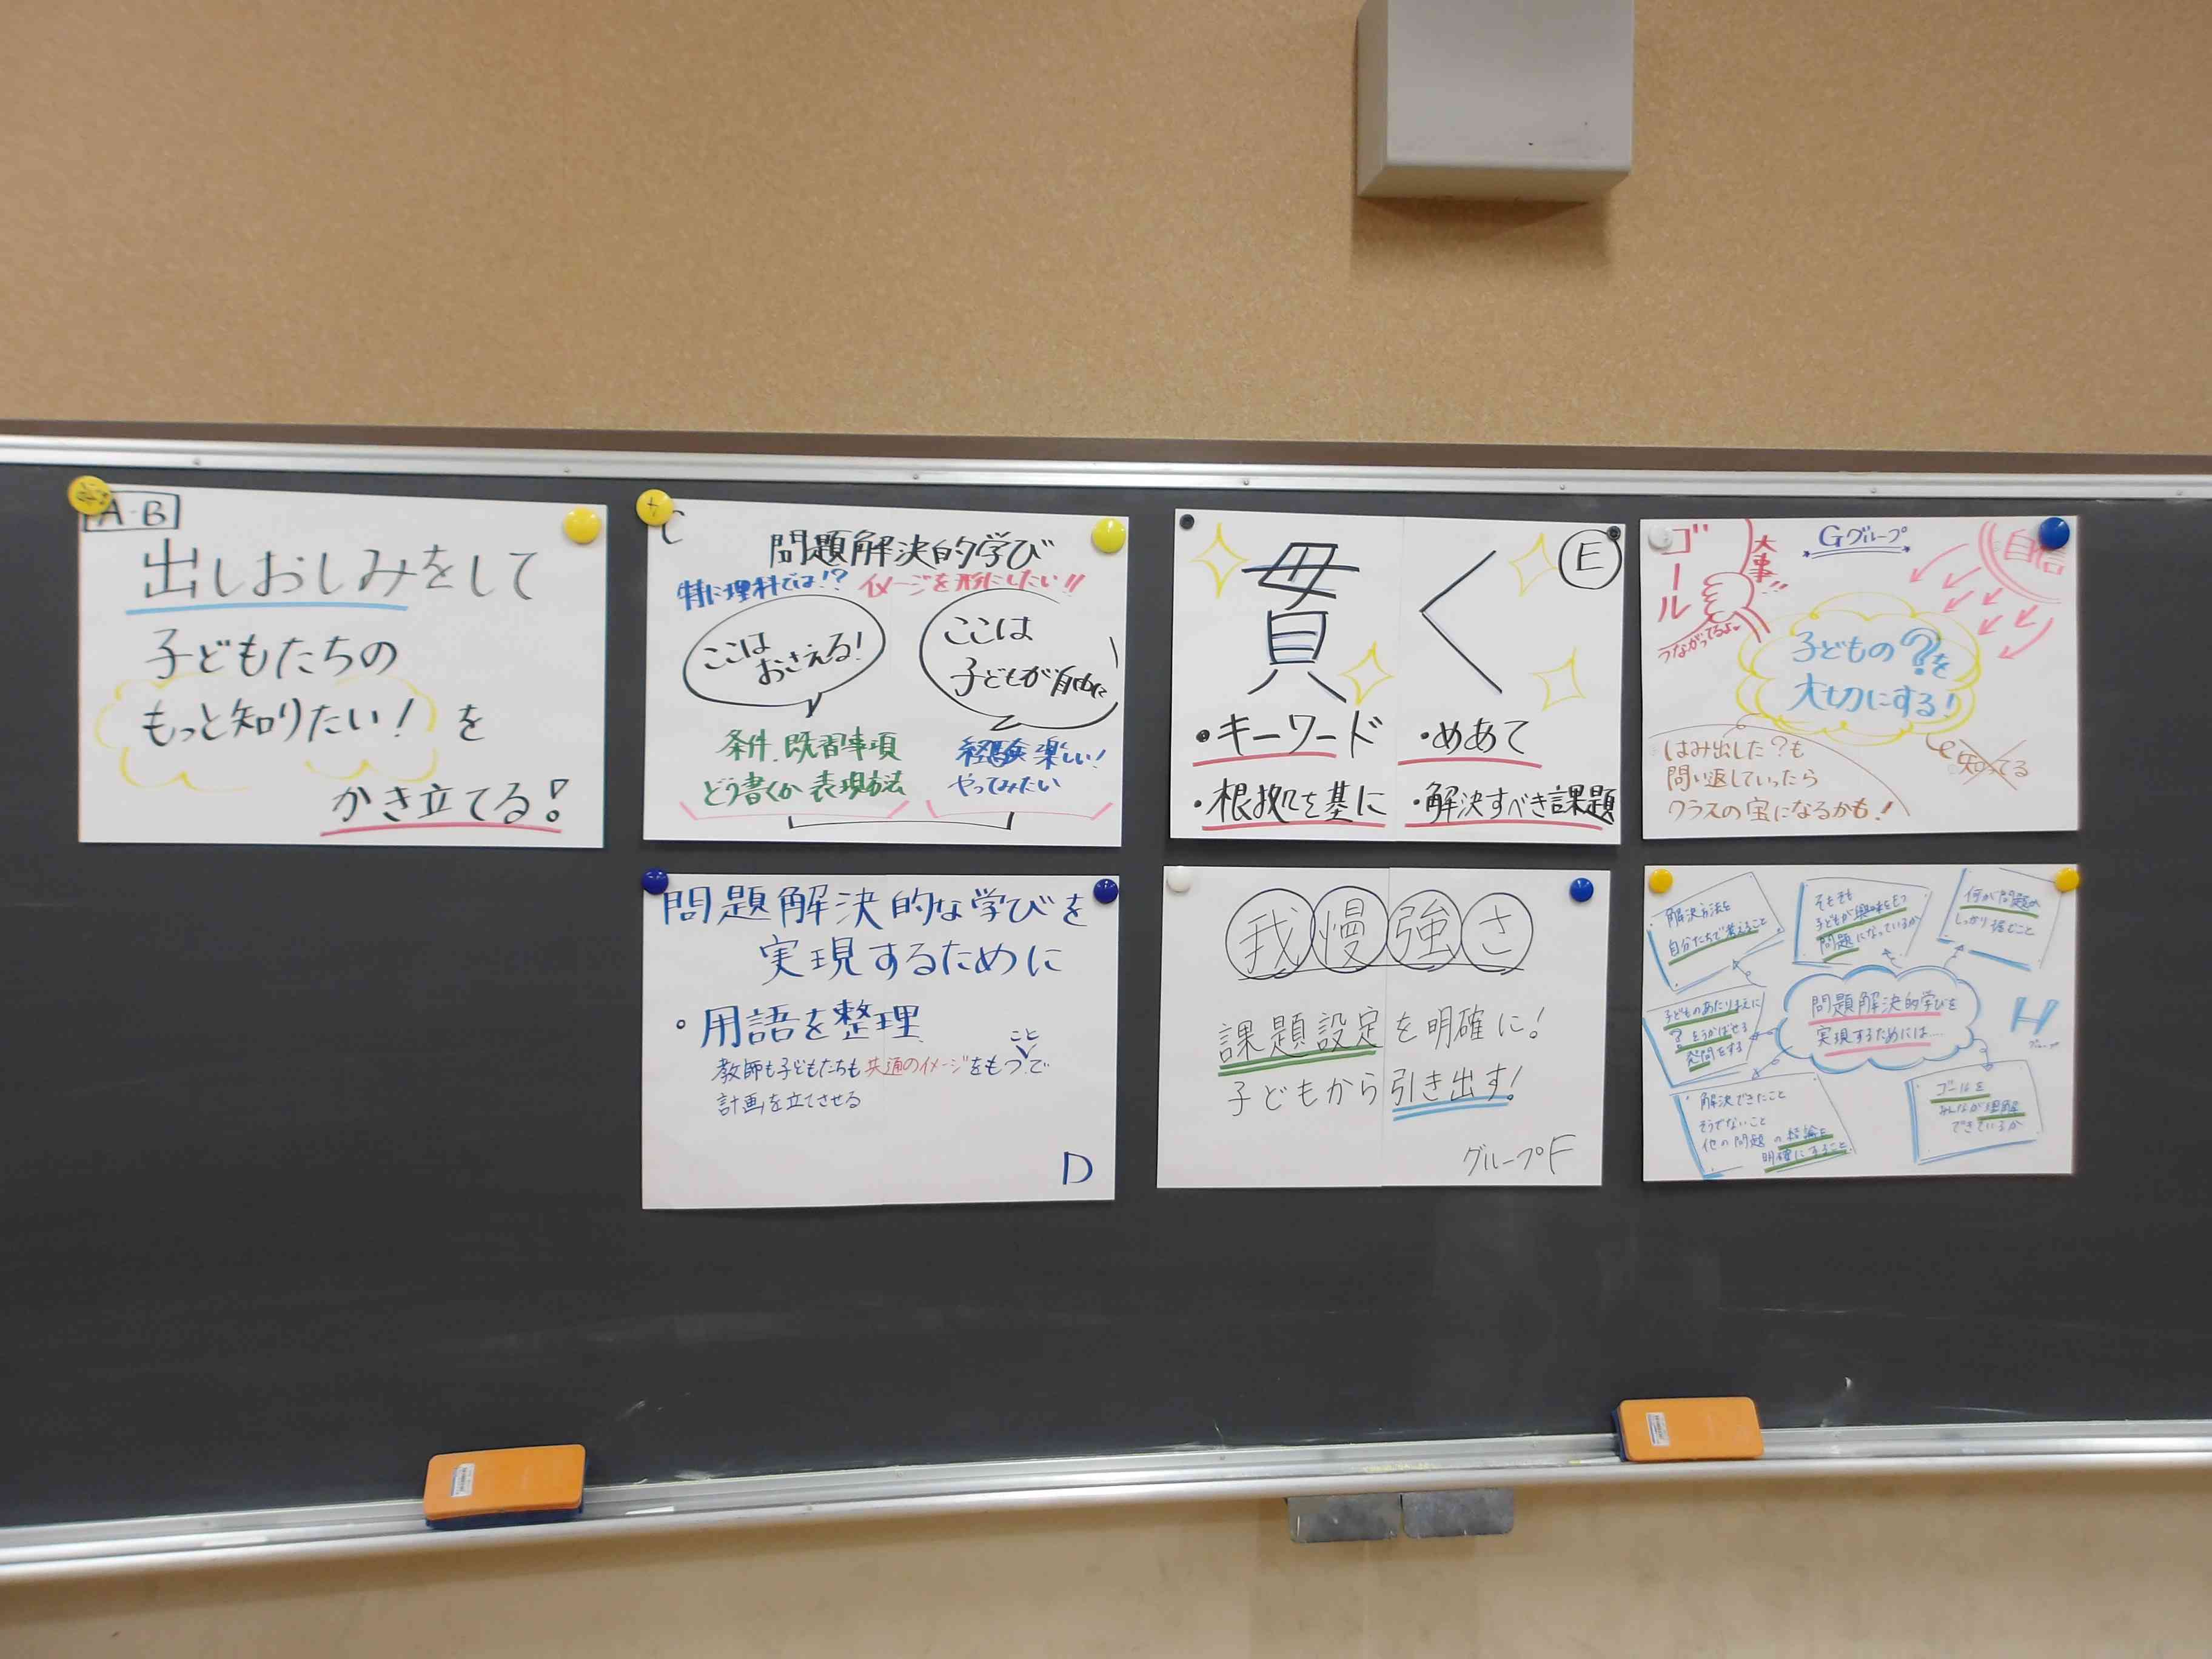 A・B
出しおしみをして
子どもたちの
もっと知りたい！を
かき立てる！
C
問題解決的学び
特に理科では!?
イメージを形にしたい!!
ここは
おさえる！
ここは
子どもが自由に
条件、既習事項
どう書くか 表現方法
経験 楽しい！
やってみたい
E
貫く
・キーワード
・根拠を基に
・めあて
・解決すべき課題
Gグループ
ゴール
大事!!
つながってるよ
自信
子どもの？を
大切にする！
知ってる
はみ出した？も
問い返していったら
クラスの宝になるかも！
問題解決的な学びを
実現するために
・用語を整理
教師も子どもたちも共通のイメージをもつことで
計画を立てさせる
D
我慢強さ
課題設定を明確に！
子どもから引き出す！
グループF
解決方法を
自分たちで考えること
そもそも
子どもが興味をもつ
問題になっているか
何が問題か
しっかり掴むこと
子どものあたりまえに
？をうかばせる
発問をする
問題解決的学びを
実現するためには…
H
グループ
・解決できたこと
そうでないこと
他の問題の結論を
明確にすること
ゴールを
みんなが理解
できているか